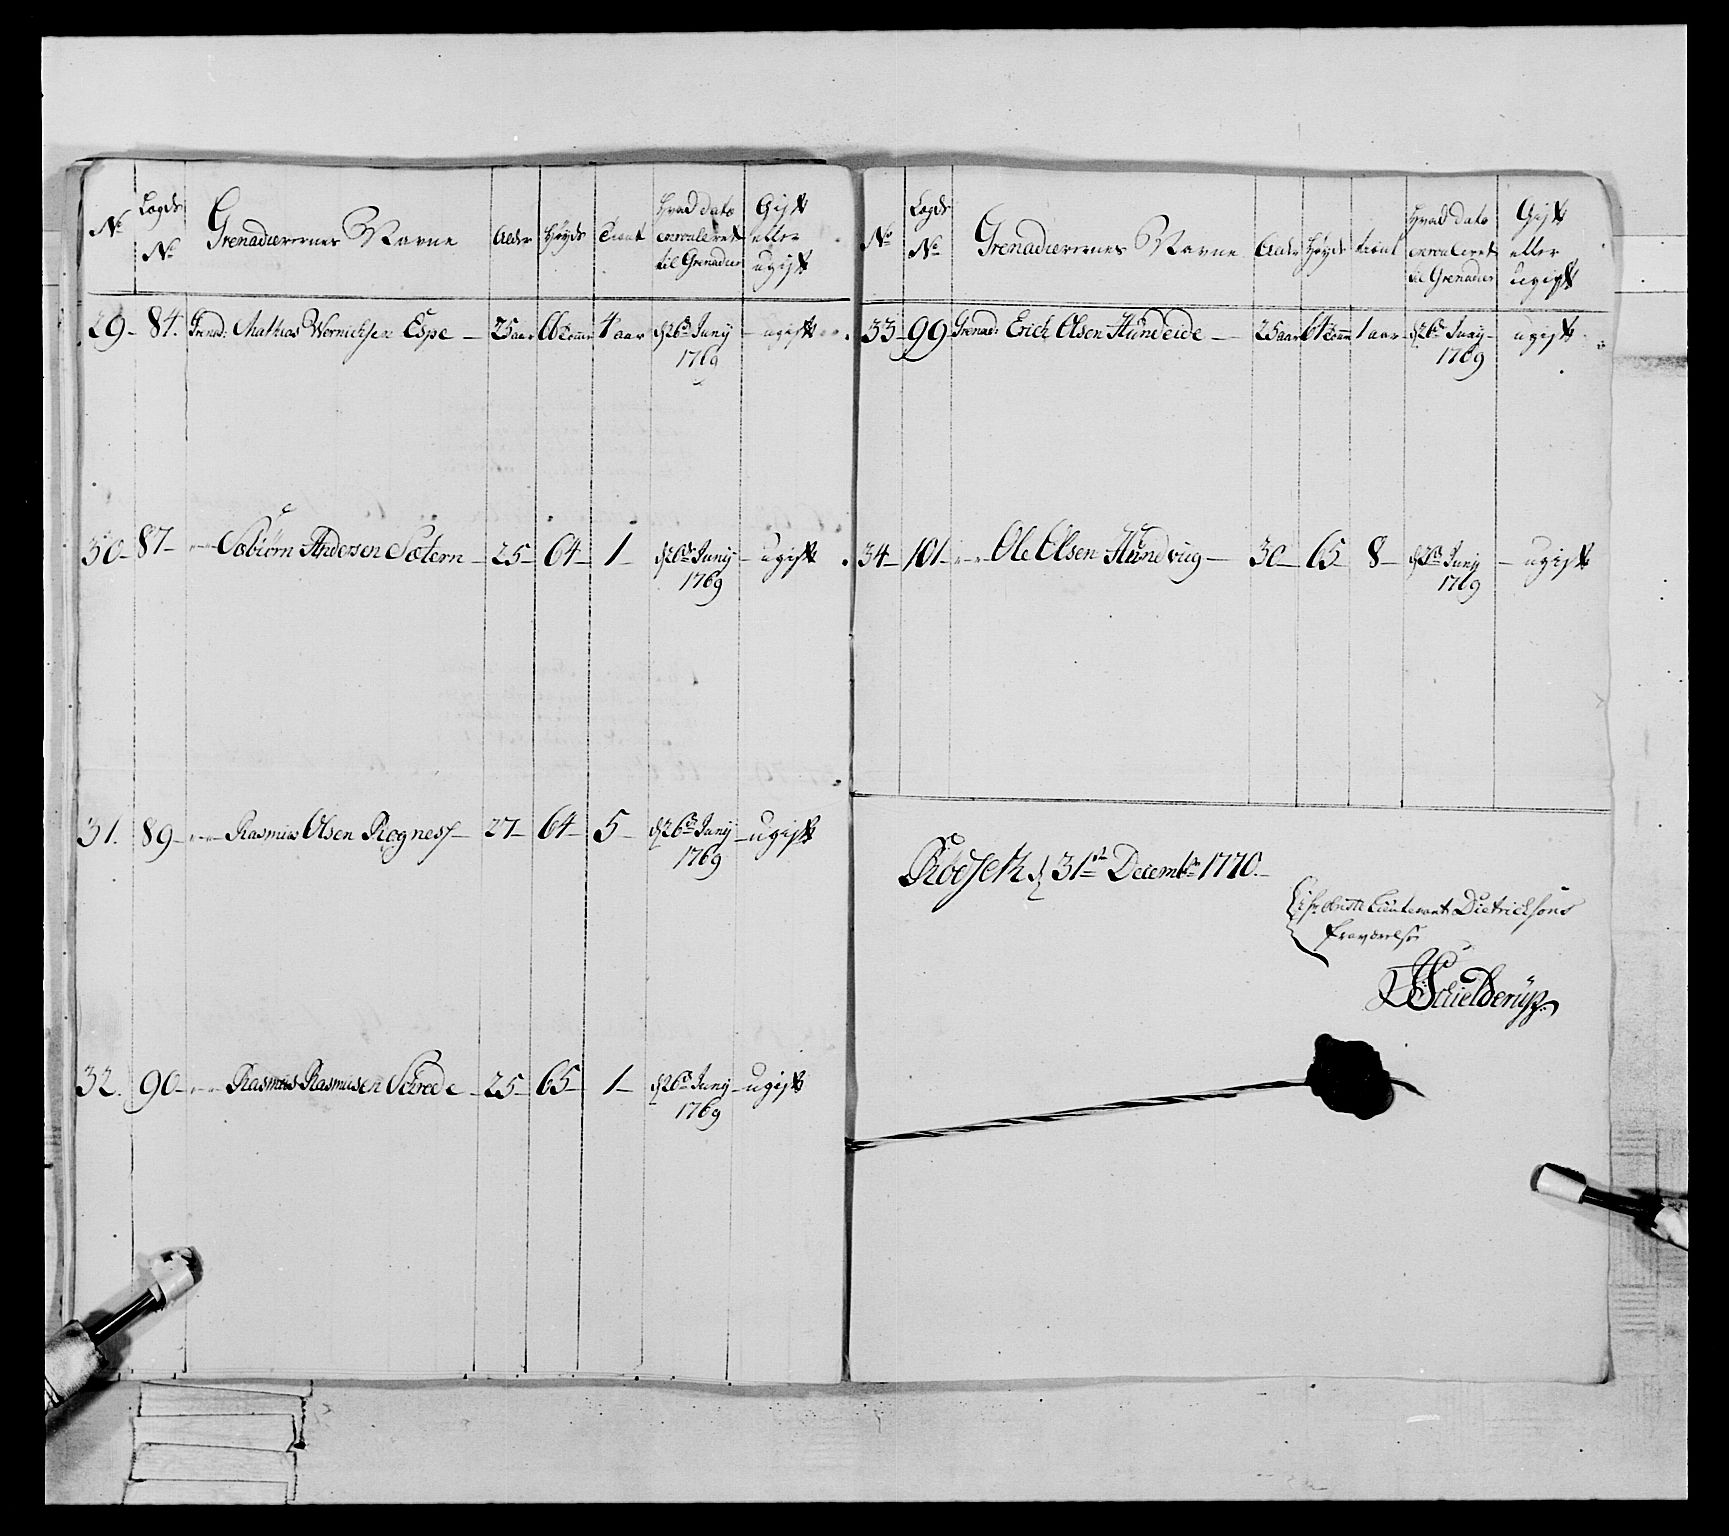 No | Lægds No | Grenadierernes Navne | Alder | Høyde | Tient | Hvad dato enroleret til Grenadier | Gift eller ugift
29 - 84. Grenad: Mathias Wernichsen Espe - 25 aar 66 Tomer 4 aar d 26de Junij - ugift
1769
30 - 87 - Sæbiørn Andersen Sætern - 25 - 64 - 1 - d 26de Junij - ugift
1769
31. 89 - Rasmus Olsen Rognes - 27 - 64 - 5 - d 26de Junij - ugift
1769
32. 90 - Rasmus Rasmusen Schrede - 25 - 65 - 1 - d 26de Junij - ugift
1769
No | Lægds No | Grenadierernes Navne | Alder | Høyde | tient | Hvad dato enroleret til Grenadier | Gift eller ugift
33 - 99 Grenad: Erich Olsen Hundeide - 25 aar 64 Tomm 1 aar d 26de Junij - ugift
1769
34 - 101 - Ole Olsen Hundvug - 30 - 65 - 8 - Junij - ugift
1769
d 31te Decembr 1770.
Obriste Lieutenant Dietrichsons
fraværelse
Schielderup